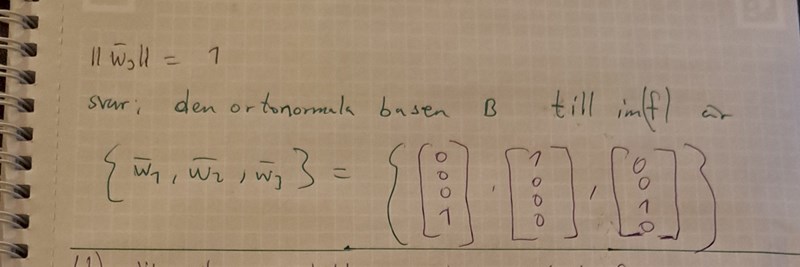 ||w̄₃|| = 1
svar: den ortonormala basen B till im(f) är
{w̄₁, w̄₂, w̄₃} = {[0 0 0 1], [1 0 0 0], [0 0 1 0]}